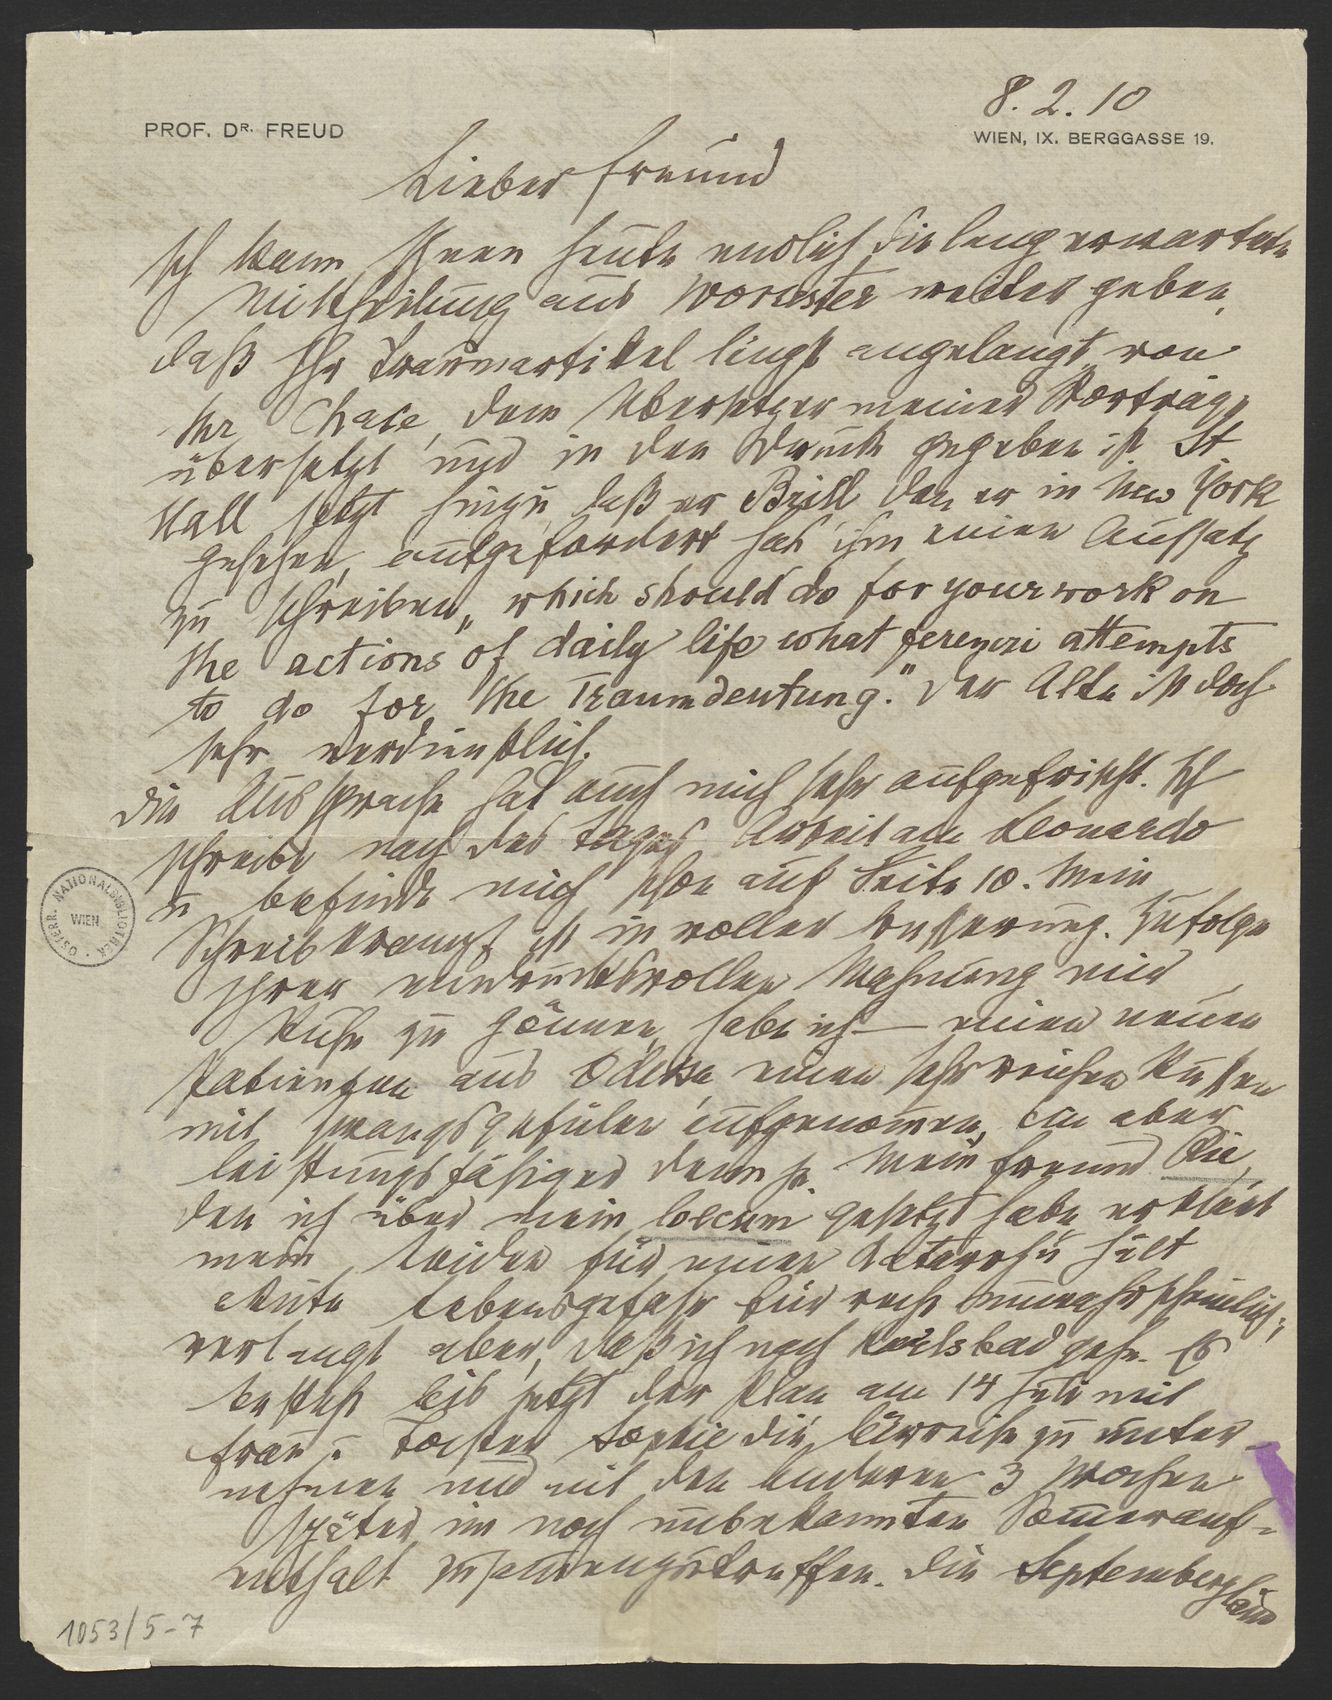 8. 2. 10
PROF. DR. FREUD
WIEN, IX. BERGGASSE 19.
Lieber Freund
Ich kann Ihnen heute endlich die lang erwartete
Mittheilung aus Worcester weiter geben,
daß Ihr Traumartikel längst angelangt, von
Mr Chase, dem Übersetzer meiner Vorträge,
übersetzt und in den Druck gegeben ist. St
Hall setzt hinzu, daß er Brill, den er in New York
gesehen, aufgefordert hat, ihm einen Aufsatz
zu schreiben, „which should do for your work on
the actions of daily life what Ferenczi attempts
to do for the Traumdeutung." Der Alte ist doch
sehr verdienstlich.
Die Aussprache hat auch mich sehr aufgefrischt. Ich
schreibe nach des Tages Arbeit am Leonardo
u befinde mich schon auf Seite 10. Mein
Schreibkrampf ist in voller Besserung. Zufolge
Ihrer eindrucksvollen Mahnung mir
Ruhe zu gönnen, habe ich — einen neuen
Patienten aus Odessa, einen sehr reichen Russen
mit Zwangsgefülen aufgenomen, bin aber
leistungsfähiger denn je. Mein Freund Rie,
den ich über mein Coecum gesetzt habe, erklärt
mein Leiden für einen hält
akute Lebensgefahr für recht unwahrscheinlich,
verlangt aber, daß ich nach Karlsbad gehe. Es
besteht bis jetzt der Plan am 14 Juli mit
Frau u Tochter Sophie die zu unter-
nehmen und mit den Anderen 3 Wochen
später im noch unbekannten Someraufenthalt
zusamenzutreffen. Die September
1053/5-7
ÖSTERR. NATIONALBIBLIOTHEK
WIEN